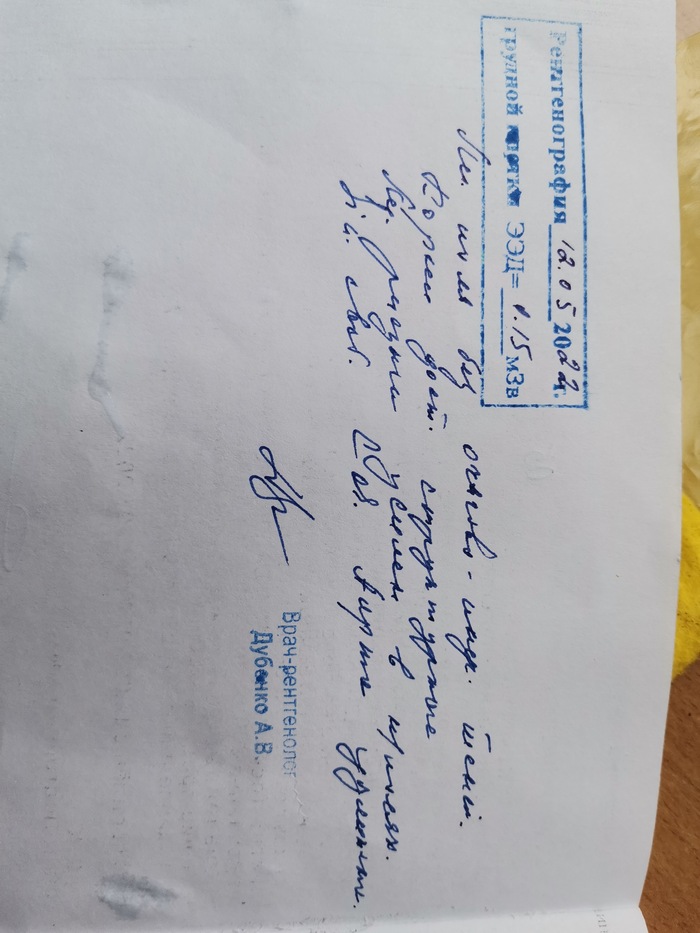 Рентгенография 12.05 2022 г.
грудной клетки ЭЭД= 0.15 мЗв
Лег. поля без очагово-инф. теней.
Корни дост. структурные
Лег. рисунок усилен в прикорн.
К.д. своб. Аорта удлинена.
Врач-рентгенолог
Дубенко А.В.